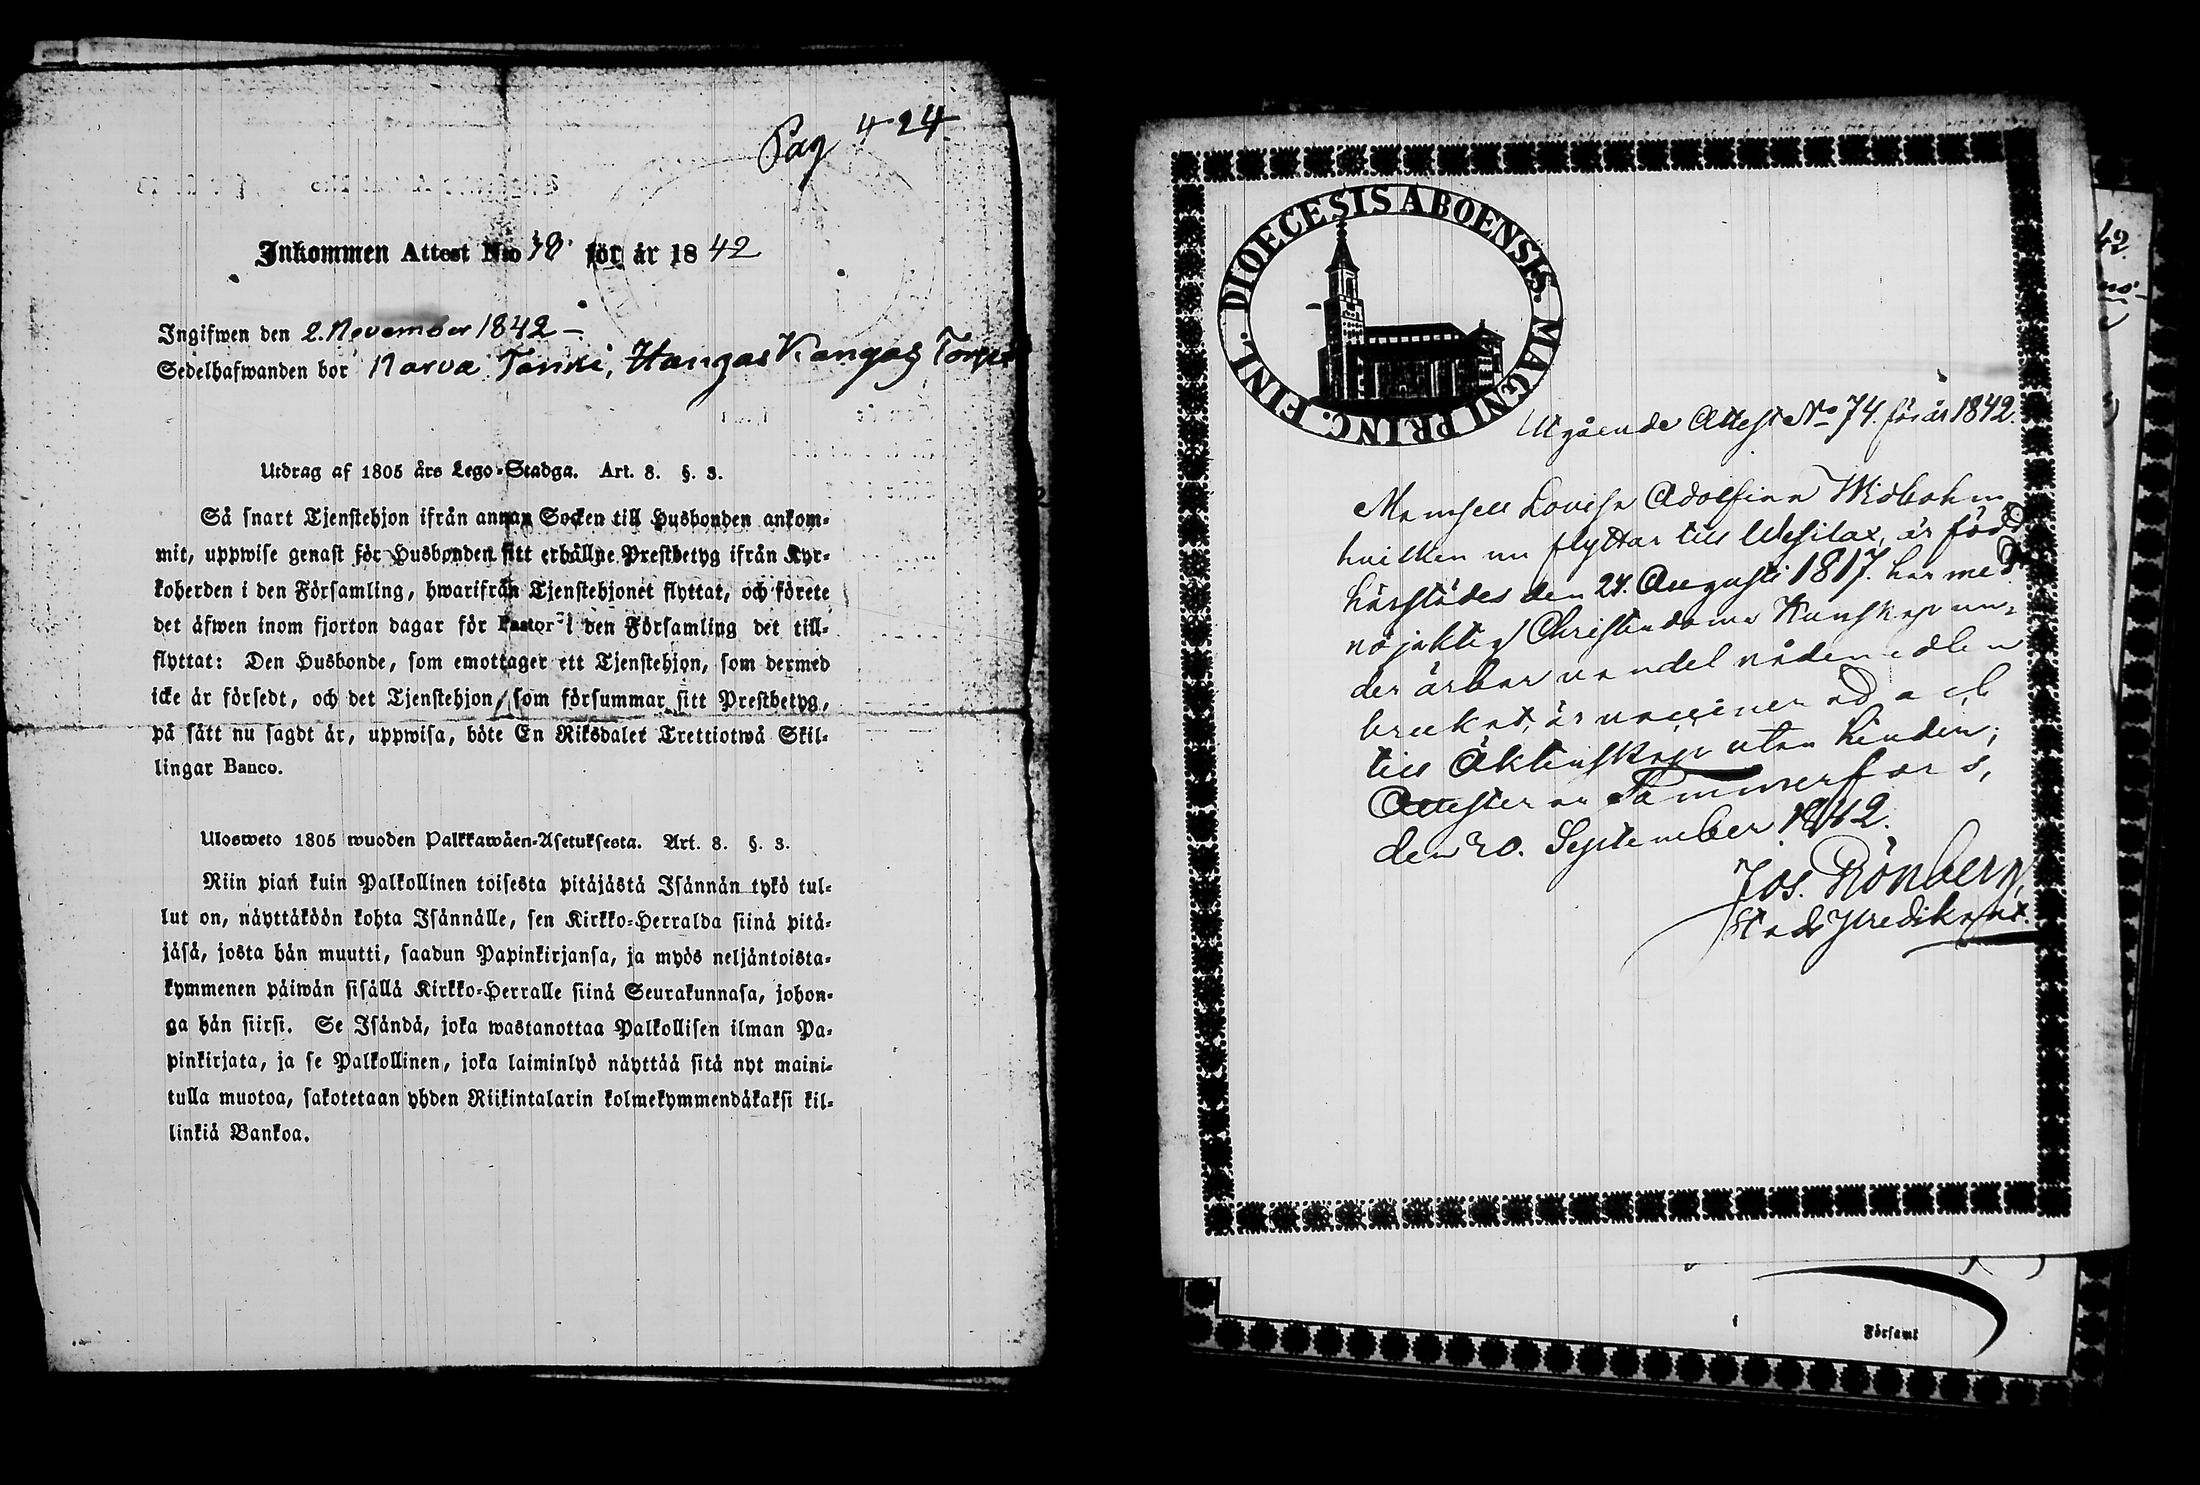 Pag 424
Inkommen Attest N:o 38. för år 1842
Ingifwen den 2. November 1842 –
Sedelhafwanden bor Narva
Utdrag af 1805 års Lego-Stadga. Art. 8. §. 3.
Så snart Tjenstehjon ifrån annan Socken till Husbonden ankom-
mit, uppwise genast för Husbonden sitt erhållne Prestbetyg ifrån Kyr-
koherden i den Församling, hwarifrån Tjenstehjonet flyttat, och förete
det äfwen inom fjorton dagar för Pastor i den Församling det till-
flyttat: Den Husbonde, som emottager ett Tjenstehjon, som dermed
icke är försedt, och det Tjenstehjon, som försummar sitt Prestbetyg,
på sätt nu sagdt är, uppwisa, böte En Riksdaler Trettiotwå Skil-
lingar Banco.
Ulosweto 1805 wuoden Palkkawäen-Asetuksesta. Art. 8. §. 3.
Niin pian kuin Palkollinen toisesta pitäjästä Isännän tykö tul-
lut on, näyttäköön kohta Isännälle, sen Kirkko-Herralda siinä pitä-
jäsä, josta hän muutti, saadun Papinkirjansa, ja myös neljäntoista-
kymmenen päiwän sisällä Kirkko-Herralle siinä Seurakunnasa, johon-
ga hän siirsi. Se Isändä, joka wastanottaa Palkollisen ilman Pa-
pinkirjata, ja se Palkollinen, joka laiminlyö näyttää sitä nyt maini-
tulla muotoa, sakotetaan yhden Riikintalarin kolmekymmendäkaksi kil-
linkiä Bankoa.
DIOECESIS ABOENSIS. MAGNI PRINC. FINL.
Utgående Attest No 74. för år 1842.
Mamsell Lovisa Adolfina Widbohm
hvilken nu flyttar till Wesilax, är född
härstädes den 24. Augusti 1817. har med
nöjaktig Christendoms Kunskap un-
der ärbar vandel nådemedlen
brukat, är vaccinerad och
till Äktenskap utan hinder;
Attesterar Tammerfors,
den 20. September 1842.
Jos. Grönberg,
Stads Predikant.
42.
Församl